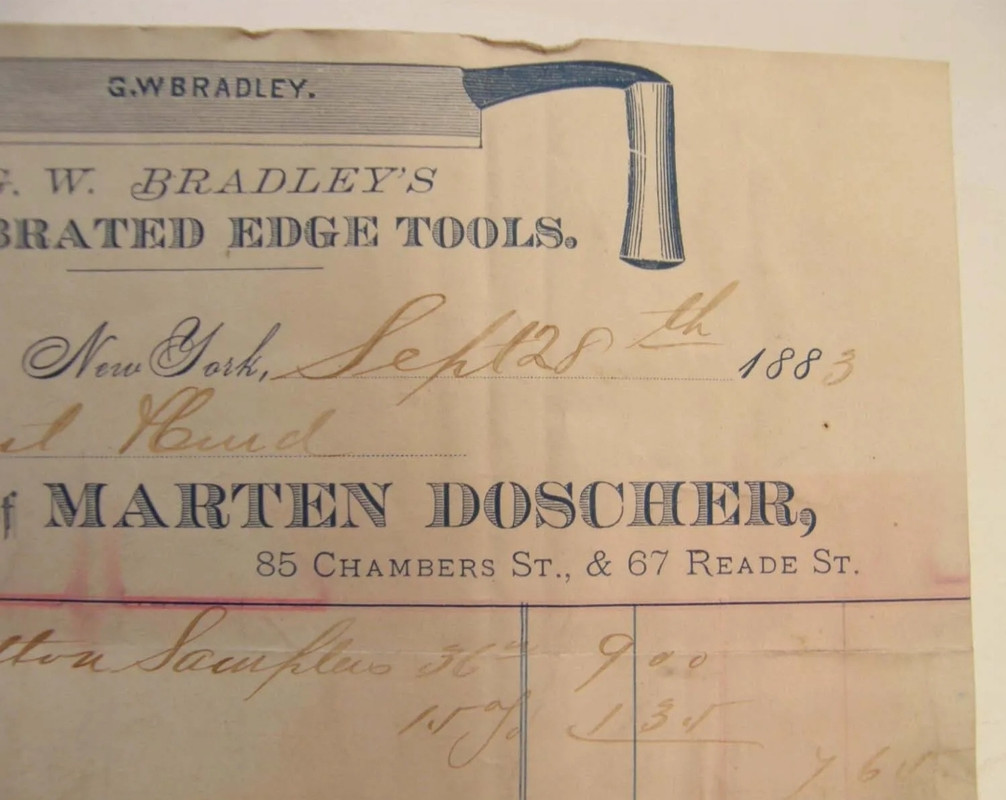 G.W BRADLEY.
G. W. BRADLEY'S
BRATED EDGE TOOLS.
New York, Sept 28th 1883
Hurd
of MARTEN DOSCHER,
85 CHAMBERS ST., & 67 READE ST.
tton Samplers 36 9 00
15% 1 35
7 65